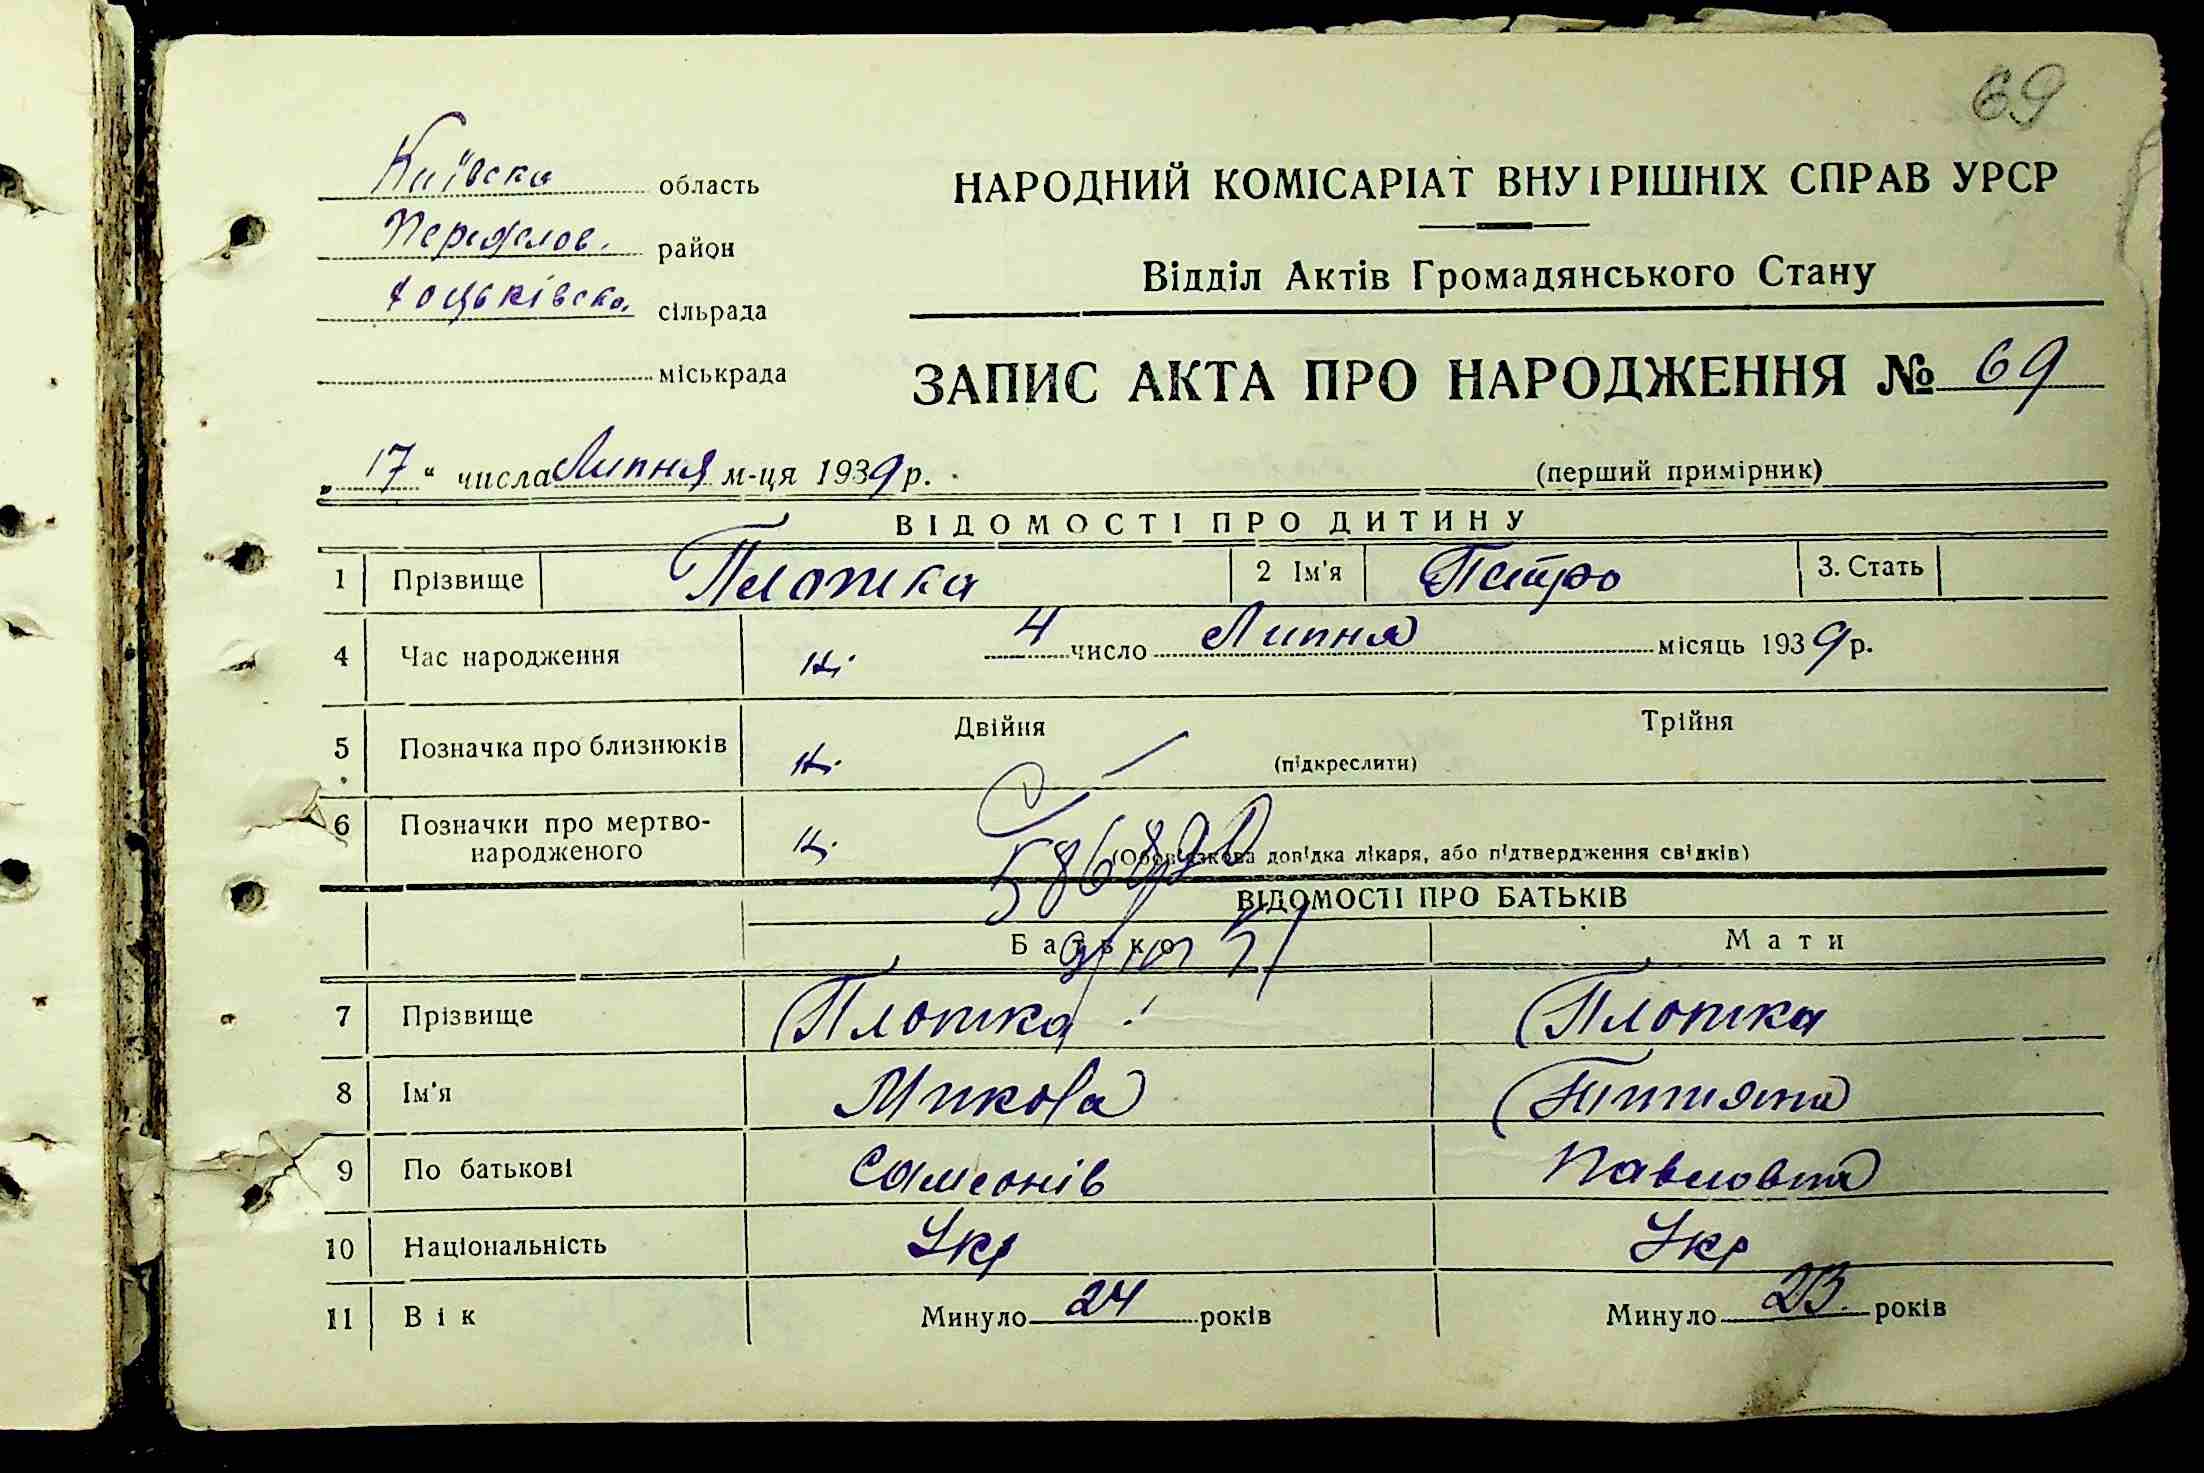 69
Київська область
НАРОДНИЙ КОМІСАРІАТ ВНУТРІШНІХ СПРАВ УРСР
Переяслов. район
Відділ Актів Громадянського Стану
сільрада
міськрада
ЗАПИС АКТА ПРО НАРОДЖЕННЯ № 69
„17“ числа Липня м-ця 1939 р.
(перший примірник)
ВІДОМОСТІ ПРО ДИТИНУ
1 Прізвище Плотка 2 Ім'я Петро 3. Стать
4 Час народження 4 число Липня місяць 1939 р.
5 Позначка про близнюків Двійня Трійня
(підкреслити)
6 Позначки про мертво-
народженого
(Обов'язкова довідка лікаря, або підтвердження свідків)
ВІДОМОСТІ ПРО БАТЬКІВ
Батько Мати
7 Прізвище Плотка Плотка
8 Ім'я Микола Титяна
9 По батькові Самсонів Павловна
10 Національність Укр Укр
11 Вік Минуло 24 років Минуло 23 років